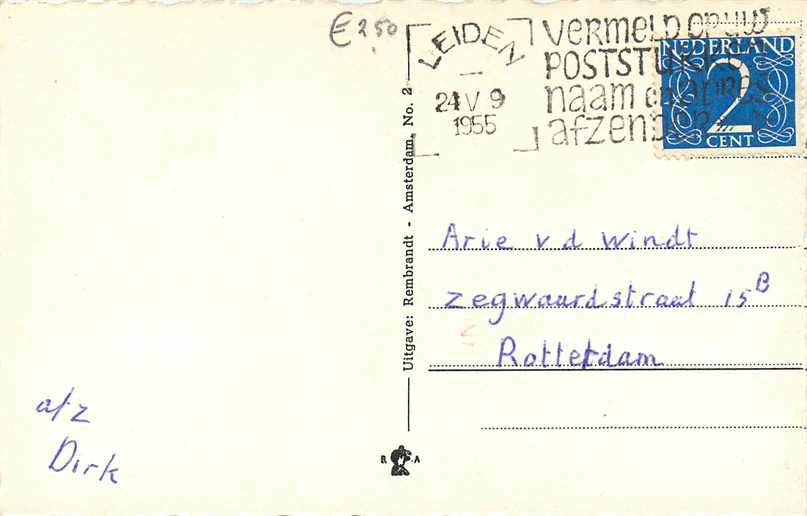 € 2,50
LEIDEN
24 V 9
1955
vermeld op uw
POSTSTUKKEN
naam en adres
afzender
NEDERLAND
2
CENT
Uitgave: Rembrandt - Amsterdam, No. 2
Arie v d Windt
Zegwaardstraat 15B
Rotterdam
afz
Dirk
R A